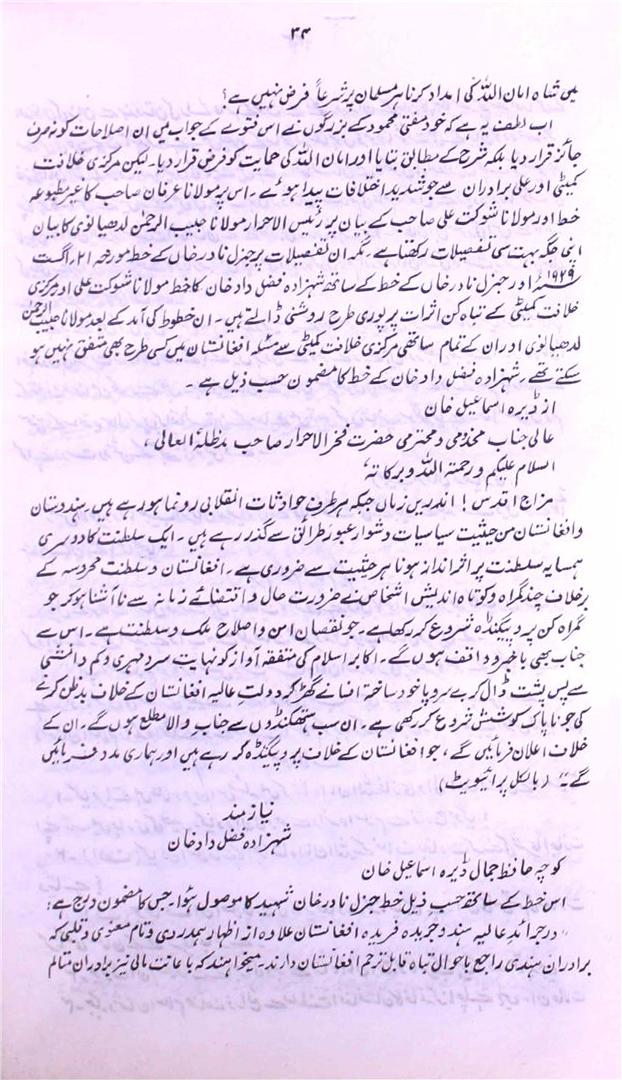 ۴۴
میں شاہ امان اللہ کی امداد کرنا ہر مسلمان پر شرعاً فرض نہیں ہے؟
اب لطف یہ ہے کہ خود مفتی محمود کے بزرگوں نے اس فتوے کے جواب میں ان اصلاحات کو نہ صرف
جائز قرار دیا بلکہ شرح کے مطابق بتایا اور امان اللہ کی حمایت کو فرض قرار دیا۔ لیکن مرکزی خلافت
کمیٹی اور علی برادران سے جو شدید اختلافات پیدا ہوئے۔ اس پر مولانا عرفان صاحب کا غیر مطبوعہ
خط اور مولانا شوکت علی صاحب کے بیان پر رئیس الاحرار مولانا حبیب الرحمٰن لدھیانوی کا بیان
اپنی جگہ بہت سی تفصیلات رکھتا ہے۔ مگر ان تفصیلات پر جنرل نادر خاں کے خط مورخہ ۲۱، اگست
۱۹۲۹ء اور جنرل نادر خاں کے خط کے ساتھ شہزادہ فضل داد خان کا خط مولانا شوکت علی اور مرکزی
خلافت کمیٹی کے تباہ کن اثرات پر پوری طرح روشنی ڈالتے ہیں۔ ان خطوط کی آمد کے بعد مولانا حبیب الرحمٰن
لدھیانوی اور ان کے تمام ساتھی مرکزی خلافت کمیٹی سے مسئلہ افغانستان میں کسی طرح بھی متفق نہیں ہو
سکتے تھے۔ شہزادہ فضل داد خان کے خط کا مضمون حسب ذیل ہے۔
از ڈیرہ اسماعیل خان
عالی جناب مخدومی و محترمی حضرت فخر الاحرار صاحب مدظلہ العالی،
السلام علیکم ورحمۃ اللہ وبرکاتہ،
مزاج اقدس! اندریں زماں جبکہ ہر طرف حوادثات انقلابی رونما ہو رہے ہیں ہندوستان
و افغانستان من حیثیت سیاسیات دشوار عبور طرائق سے گذر رہے ہیں۔ ایک سلطنت کا دوسری
ہمسایہ سلطنت پر اثر انداز ہونا ہر حیثیت سے ضروری ہے۔ افغانستان و سلطنت محروسہ کے
برخلاف چند گمراہ و کوتاہ اندیش اشخاص نے ضرورت حال و اقتضائے زمانہ سے ناآشنا ہو کر جو
گمراہ کن پروپیگنڈہ شروع کر رکھا ہے۔ جو نقصان امن و اصلاح ملک و سلطنت ہے۔ اس سے
جناب بھی باخبر و واقف ہوں گے۔ اکابر اسلام کی متفقہ آواز کو نہایت سرد مہری و کم دانشی
سے پس پشت ڈال کر بے سروپا خود ساختہ افسانے گھڑ کر دولت عالیہ افغانستان کے خلاف بدظن کرنے
کی جو ناپاک کوشش شروع کر رکھی ہے۔ ان سب ہتھکنڈوں سے جناب والا مطلع ہوں گے۔ ان کے
خلاف اعلان فرمائیں گے، جو افغانستان کے خلاف پروپیگنڈہ کر رہے ہیں اور ہماری مدد فرمائیں
گے۔" (بالکل پرائیویٹ)
نیاز مند
شہزادہ فضل داد خان
کوچہ حافظ جمال ڈیرہ اسماعیل خان
اس خط کے ساتھ حسب ذیل خط جنرل نادر خان شہید کا موصول ہؤا۔ جس کا مضمون درج ہے:
"در جرائد عالیہ ہند و جریدہ فریدہ افغانستان علاوہ از اظہار ہمدردی و تام معنوی و قلبی کہ
برادران ہندی راجع باحوال تباہ قابل ترحم افغانستان دارند۔ میخواہند کہ باعانت مالی نیز برادران متالم